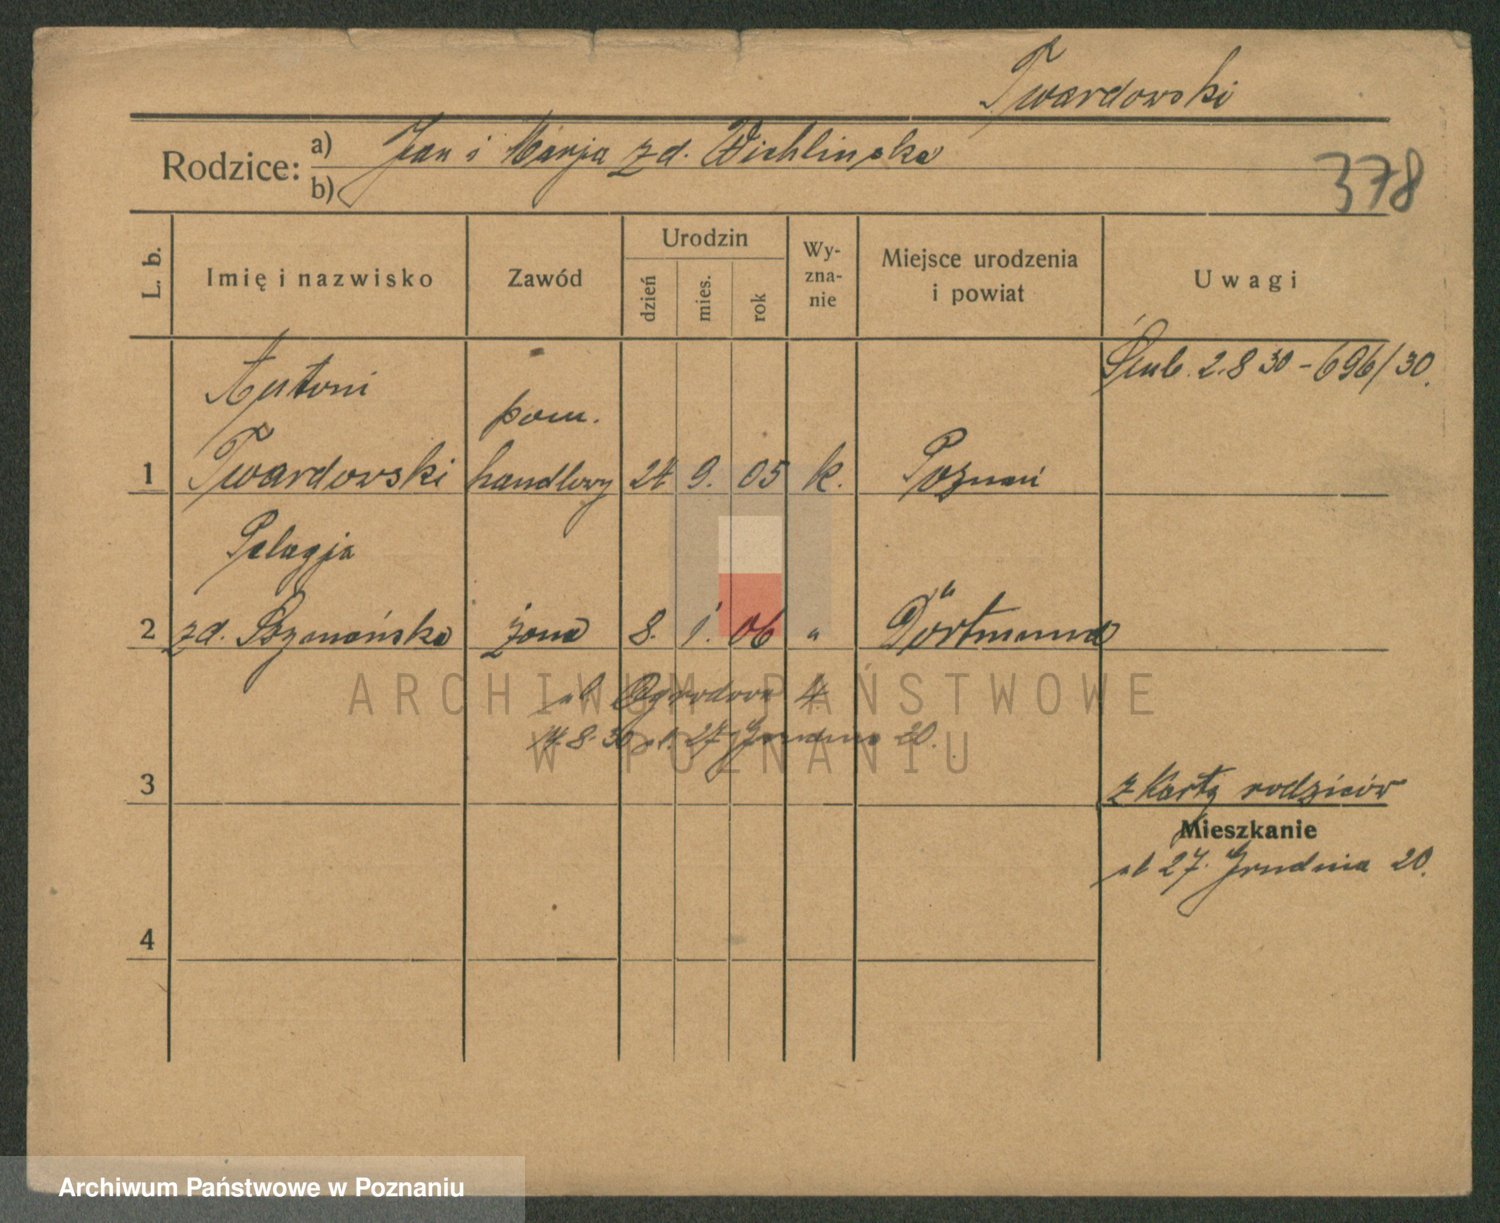 Twardowski
Rodzice: a) Jan i Marja zd. Wichlinska
b)
378
L. b.
Imię i nazwisko
Zawód
Urodzin
dzień
mies.
rok
Wy-
zna-
nie
Miejsce urodzenia
i powiat
Uwagi
Ślub. 2.8 30 - 696/30.
Antoni
pom.
1 Twardowski handlowy 24 9. 05 k. Poznań
Pelagja
2 zd. Szymańska żona 8. 1. 06 " Dortmund
ul Ogrodowa 4
14.8.30 ul. 27 Grudnia 20.
3
z karty rodziców
Mieszkanie
ul 27. Grudnia 20.
4
ARCHIWUM PAŃSTWOWE
W POZNANIU
Archiwum Państwowe w Poznaniu